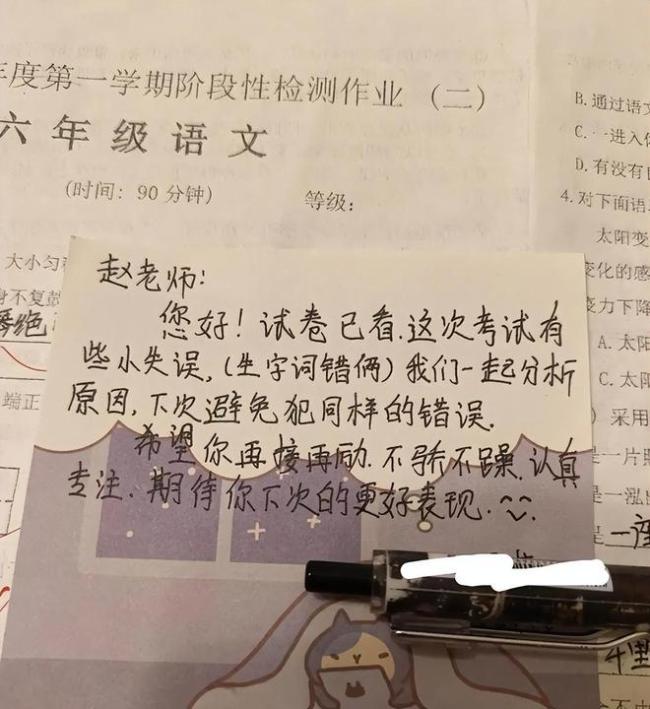 年度第一学期阶段性检测作业（二）
六年级语文
（时间：90分钟）
等级：
大小匀
赵老师：
您好！试卷已看.这次考试有
些小失误,(生字词错俩)我们一起分析
原因,下次避免犯同样的错误.
希望你再接再励.不骄不躁.认真
专注.期待你下次的更好表现.
端正
B.通过语文
C.一进入
D.有没有
4.对下面语
太阳变
变化的感
变力下降
A.太阳
C.太阳
）采用
是一片
是一泓
是一座